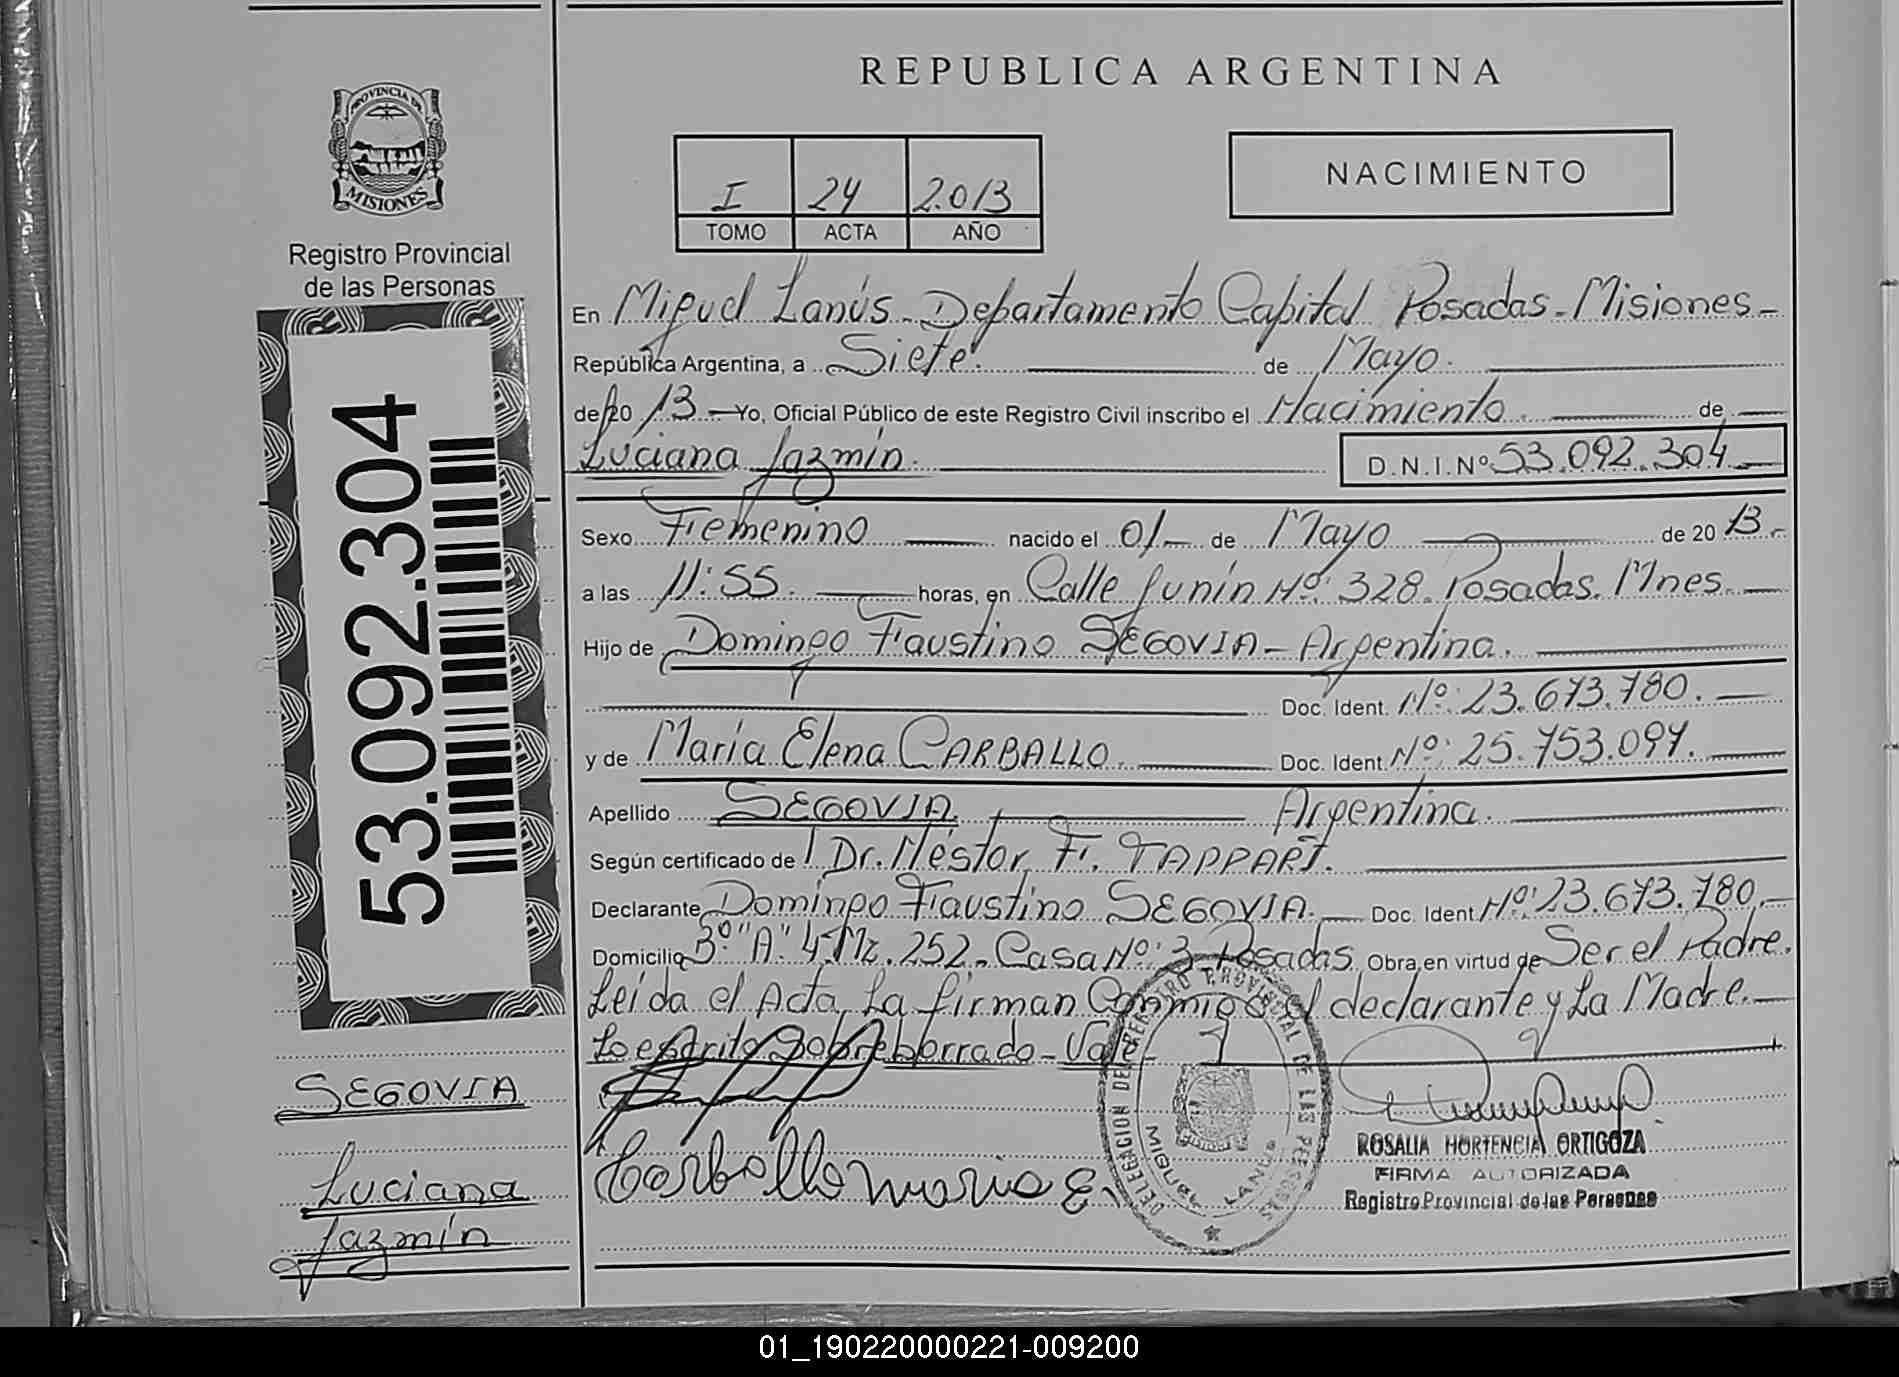 REPUBLICA ARGENTINA
PROVINCIA DE
MISIONES
Registro Provincial
de las Personas
I 24 2.013
TOMO ACTA AÑO
NACIMIENTO
53.092.304
En Miguel Lanús - Departamento Capital Posadas - Misiones -
República Argentina, a Siete. de Mayo.
de 20 13 Yo, Oficial Público de este Registro Civil inscribo el Nacimiento. de
Luciana Jazmín. D.N.I.Nº 53.092.304
Sexo Femenino nacido el 01 de Mayo de 20 13.
a las 11:55. horas, en Calle Junín Nº: 328. Posadas. Mnes.
Hijo de Domingo Faustino SEGOVIA - Argentina.
Doc. Ident. Nº: 23.673.780.
y de María Elena CARBALLO. Doc. Ident. Nº: 25.753.097.
Apellido SEGOVIA Argentina.
Según certificado de Dr. Néstor F. TAPPARI.
Declarante Domingo Faustino SEGOVIA. Doc. Ident Nº: 23.673.780.
Domicilio Bº "A" 4. Mz. 252. Casa Nº: 3 Posadas Obra en virtud de Ser el Padre.
Leída el Acta, La firman Conmigo el declarante y La Madre.
Lo escrito Sobreborrado - Vale
SEGOVIA
Luciana
Jazmín
Carballo maria E.
DELEGACION DEL REGISTRO PROVINCIAL DE LAS PERSONAS
MIGUEL LANUS
ROSALIA HORTENCIA ORTIGOZA
FIRMA AUTORIZADA
Registro Provincial de las Personas
01_190220000221-009200